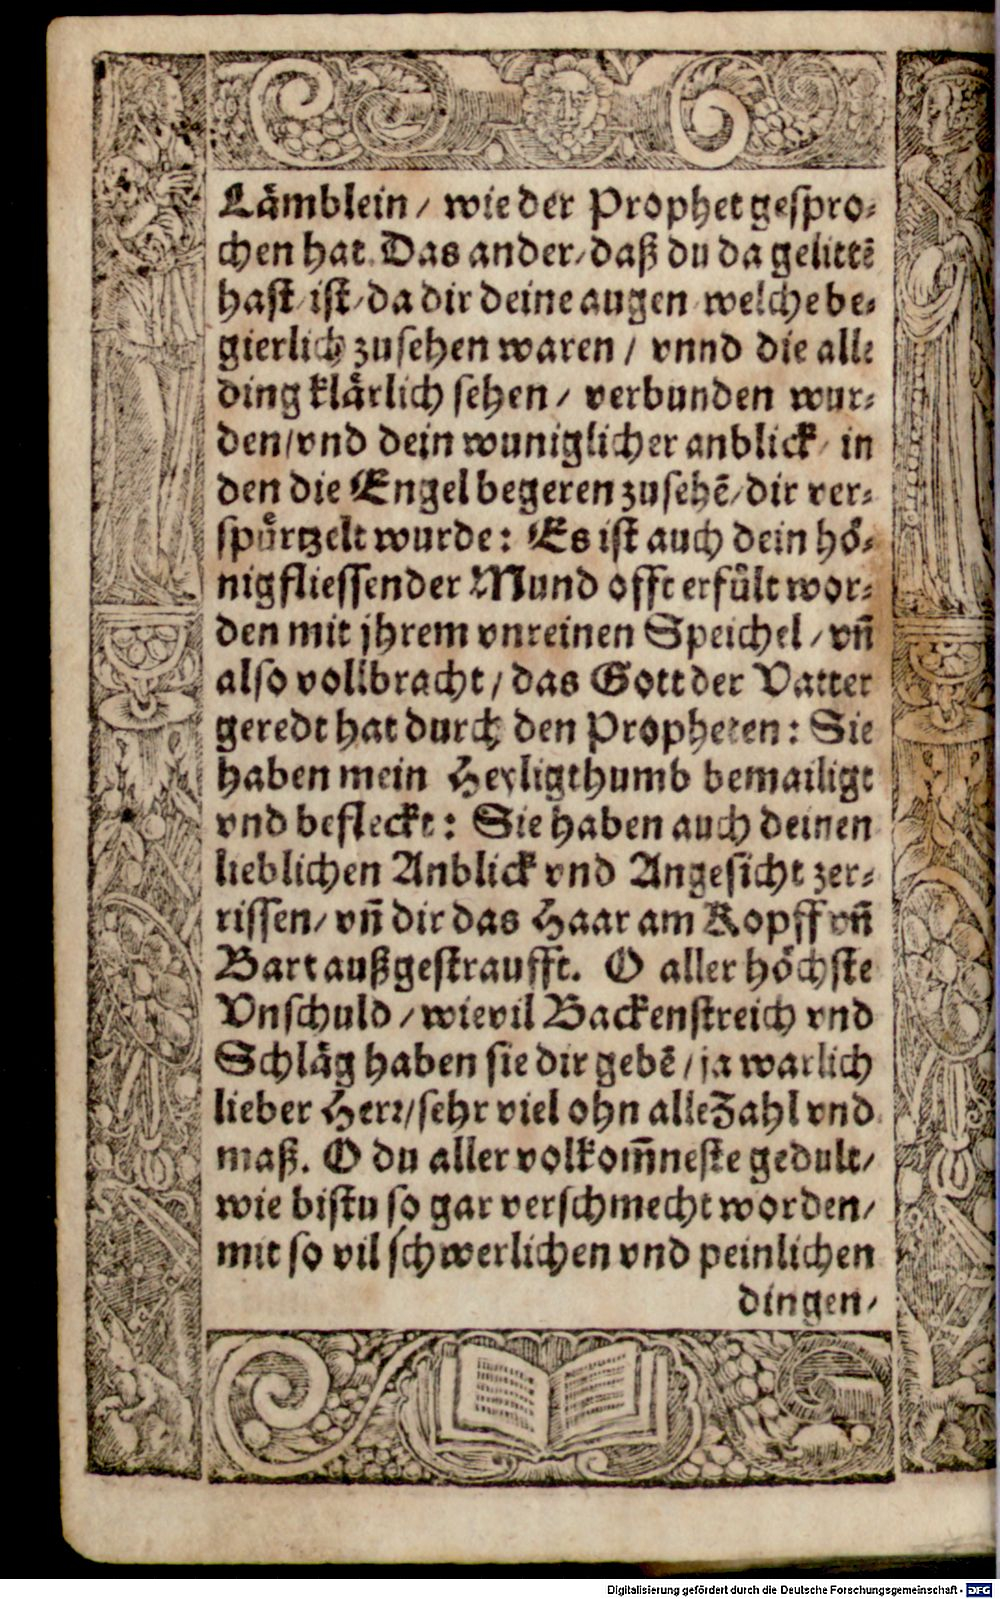 Lämblein / wie der Prophet gespro⸗
chen hat. Das ander / daß du da gelittē
hast / ist / da dir deine augen / welche be⸗
gierlich zu sehen waren / vnnd die alle
ding klärlich sehen / verbunden wur⸗
den / vnd dein wuniglicher anblick / in
den die Engel begeren zusehē / dir ver⸗
spürtzelt wurde: Es ist auch dein hö⸗
nigfliessender Mund offt erfült wor⸗
den mit jhrem vnreinen Speichel / vn̄
also vollbracht / das Gott der Vatter
geredt hat durch den Propheten: Sie
haben mein Heyligthumb bemailigt
vnd befleckt: Sie haben auch deinen
lieblichen Anblick vnd Angesicht zer⸗
rissen / vn̄ dir das Haar am Kopff vn̄
Bart außgestraufft. O aller höchste
Vnschuld / wievil Backenstreich vnd
Schläg haben sie dir gebē / ja warlich
lieber Herr / sehr viel ohn alle Zahl vnd
maß. O du aller volkom̄neste gedult /
wie bistu so gar verschmecht worden /
mit so vil schwerlichen vnd peinlichen
dingen /
Digitalisierung gefördert durch die Deutsche Forschungsgemeinschaft - DFG